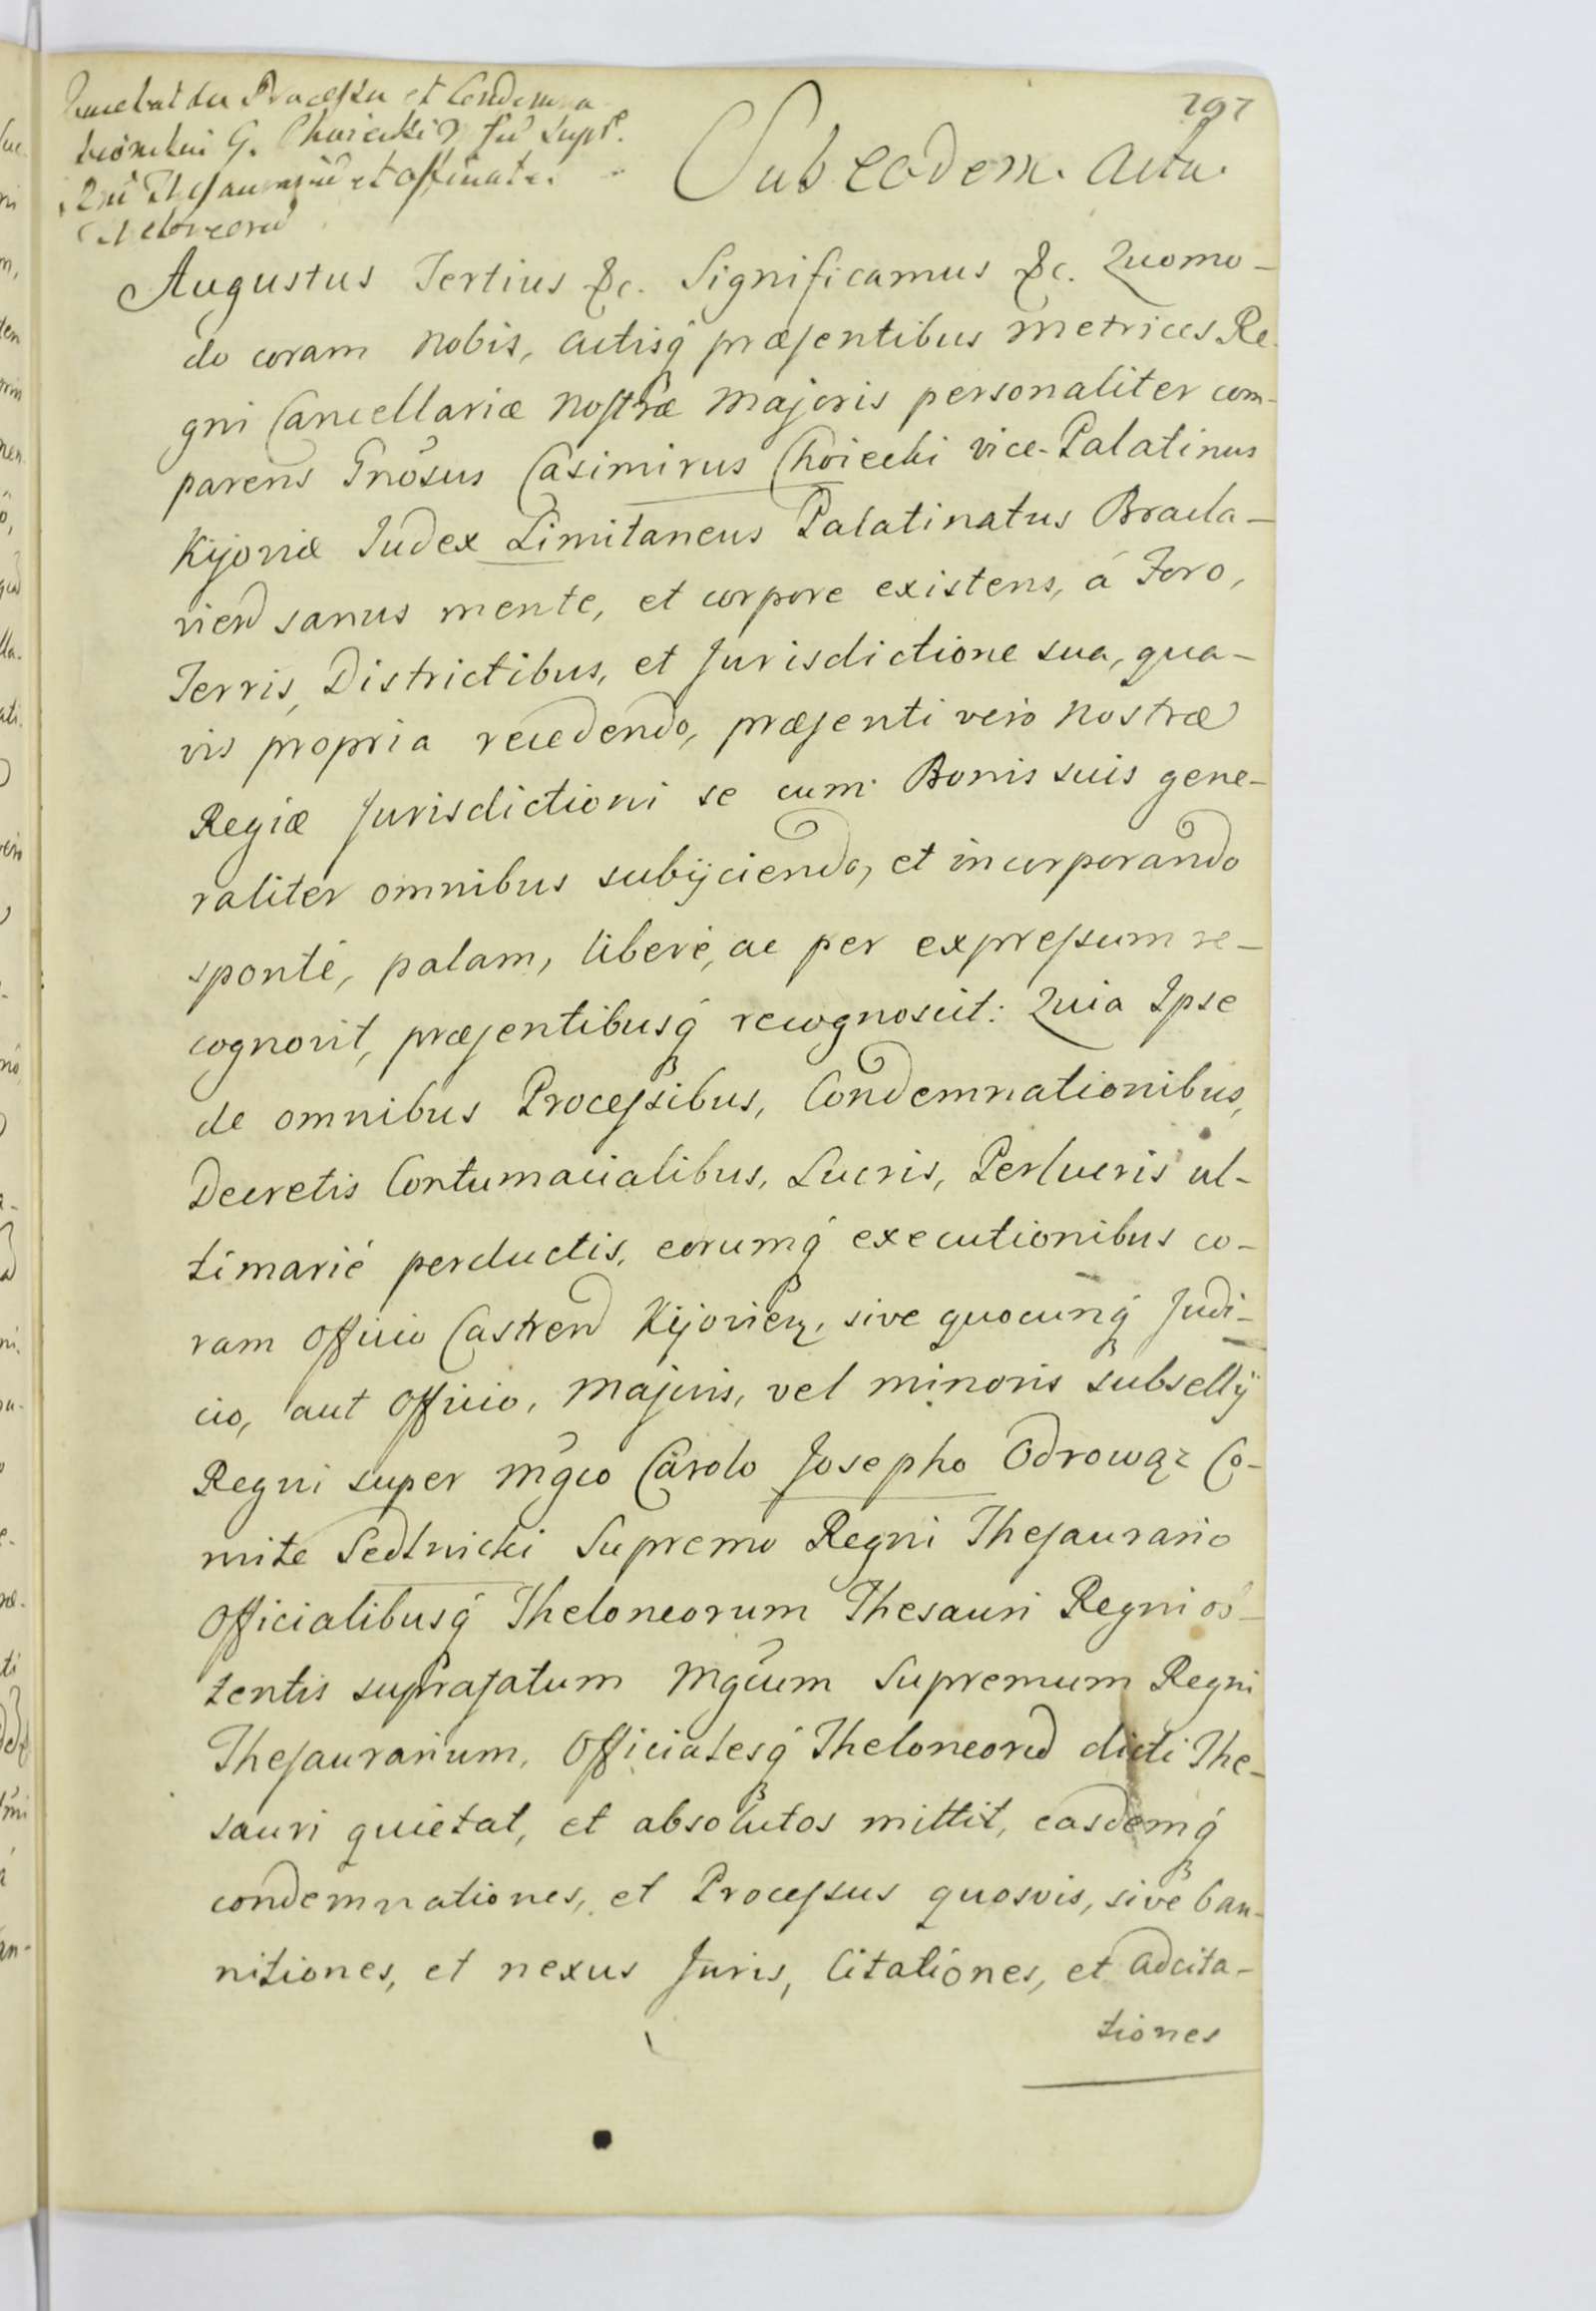 197
et Condemna
G. Choiecki
et
Sub eodem. Actu.
Augustus Tertius &c. Significamus &c. Quomo-
do coram nobis, Actisq́ præsentibus Metrices Re-
gni Cancellariæ Nostræ Majoris personaliter com-
parens Gnosus Casimirus Choiecki vice-Palatinus
Kijoviæ Judex Limitaneus Palatinatus Bracla-
vien sanus mente, et corpore existens, á Foro,
Terris, Districtibus, et Jurisdictione sua, qua-
vis propria recedendo, præsenti vero Nostræ
Regiæ Jurisdictioni se cum Bonis suis gene-
raliter omnibus subijciendo, et incorporando
sponté, palam, liberé, ac per expressum re-
cognovit, præsentibusq́ recognoscit: Quia Ipse
de omnibus Processibus, Condemnationibus,
Decretis Contumacialibus, Lucris, Perlucris ul-
timarié perductis, eorumq́ executionibus co-
ram Officio Castren Kijovien, sive quocunq́ Judi-
cio, aut Officio, Majoris, vel minoris subsellij
Regni super Mgco Carolo Josepho Odrowąz Co-
mite Sedlnicki Supremo Regni Thesaurario
Officialibusq́ Theloneorum Thesauri Regni ob-
tentis suprafatum Mgcum Supremum Regni
Thesaurarium, Officialesq́ Theloneor dicti The-
sauri quietat, et absolutos mittit, easdemq́
condemnationes, et Processus quosvis, sive ban-
nitiones, et nexus Juris, Citationes, et Adcita-
tiones